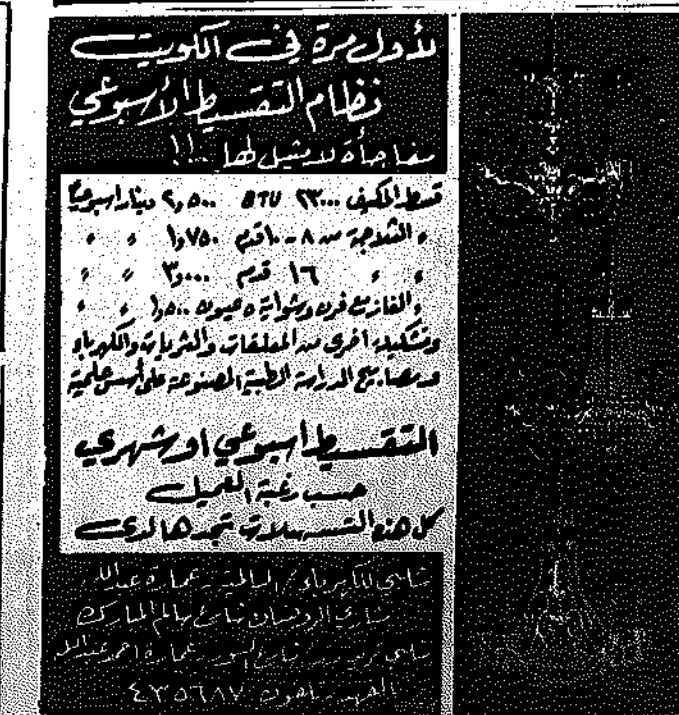 لأول مرة في الكويت
نظام التقسيط الأسبوعي
مفاجأة لا مثيل لها ..!!
قسط المكيف ٢٣٠٠٠ BTU ٢,٥٠٠ دينار اسبوعياً
» الثلاجة من ٨ - ١٠ قدم ١,٧٥٠ » »
» » ١٦ قدم ٣,٠٠٠ » »
» الغاز مع فرن وشواية ٥ عيون ١,٥٠٠ » »
وتشكيلة اخرى من المعلقات والثريات والكهرباء
ومصابيح الدراسة الطبية المصنوعة على أسس علمية
التقسيط اسبوعي او شهري
حسب رغبة العميل
كل هذه التسهيلات تجدها لدى
للكهرباء / السالمية عمارة عبدالله
شارع سالم المبارك
شارع السور عمارة احمد عبدالله
الفهد تلفون ٤٣٥٦٨٧